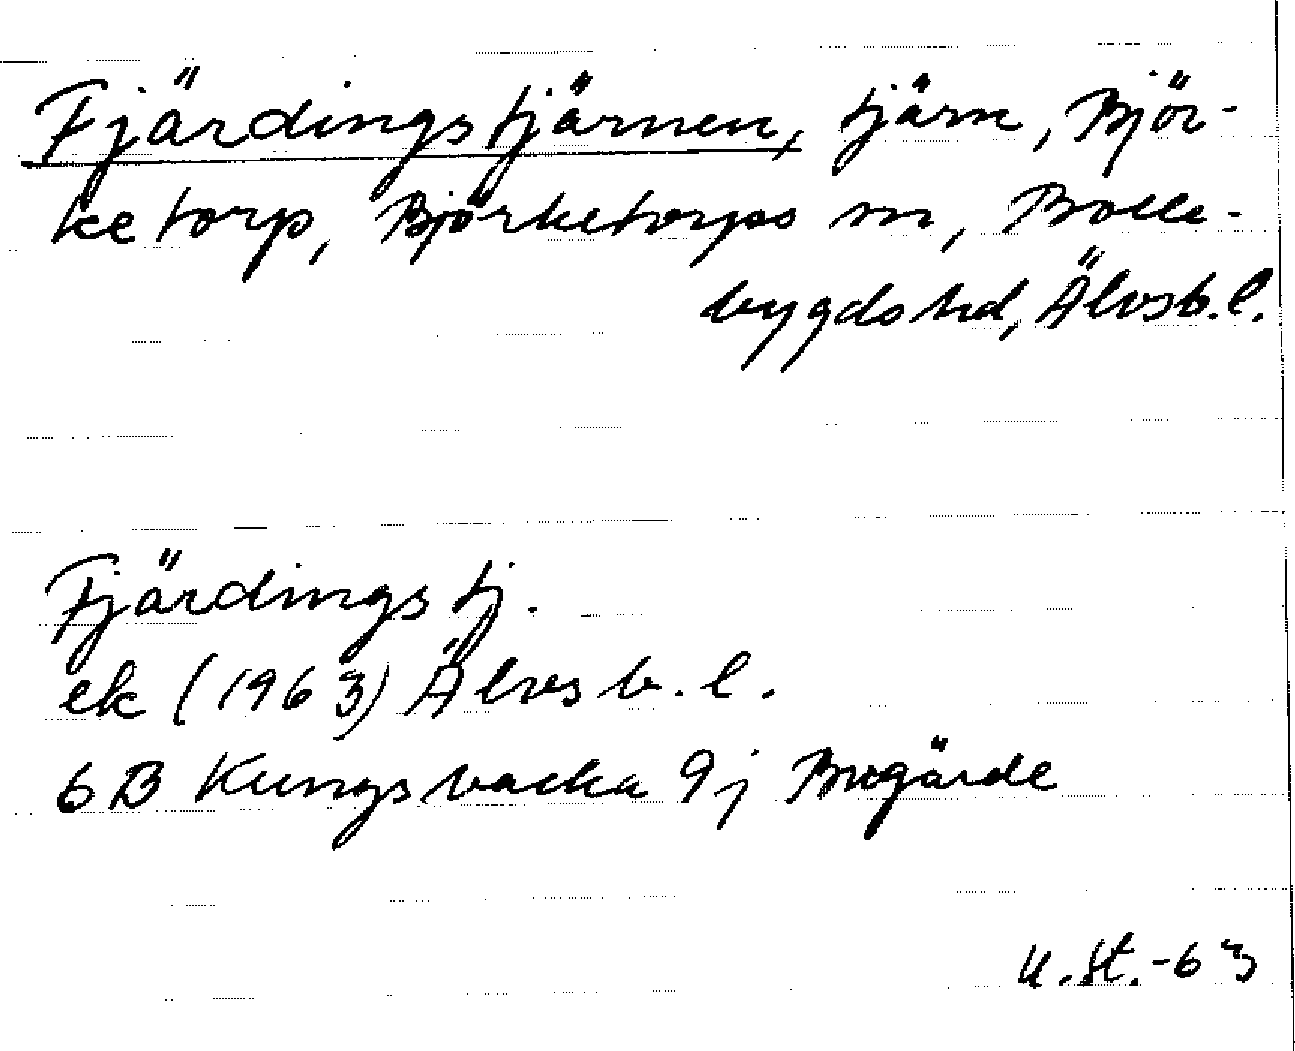 Fjärdingstjärnen, tjärn, Björ-
ketorp, Björketorps sn, Bolle-
bygds hd, Älvsb.l.
Fjärdingstj.
ek (1963) Älvsb.l.
6B Kungsbacka 9j Bugärde
U.St.-63